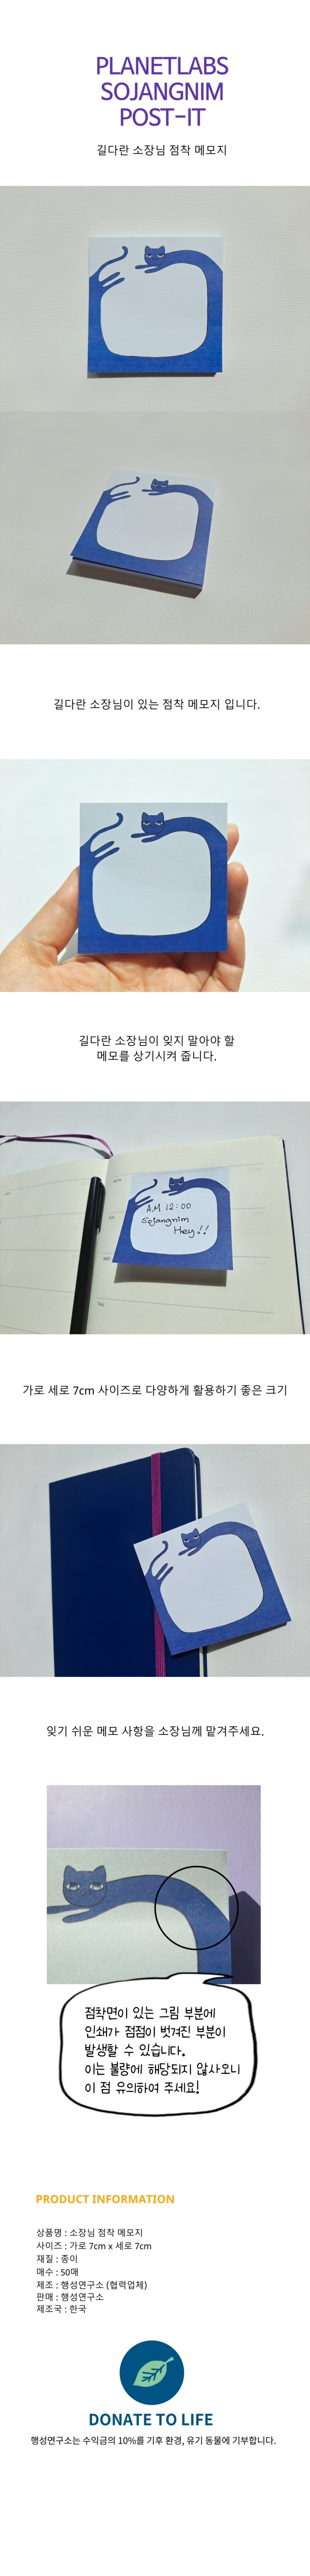 PLANETLABS
SOJANGNIM
POST-IT
길다란 소장님 점착 메모지
길다란 소장님이 있는 점착 메모지 입니다.
길다란 소장님이 잊지 말아야 할
메모를 상기시켜 줍니다.
A.M 12:00
Sojangnim
Hey!!
가로 세로 7cm 사이즈로 다양하게 활용하기 좋은 크기
잊기 쉬운 메모 사항을 소장님께 맡겨주세요.
점착면이 있는 그림 부분에
인쇄가 점점이 벗겨진 부분이
발생할 수 있습니다.
이는 불량에 해당되지 않사오니
이 점 유의하여 주세요!
PRODUCT INFORMATION
상품명 : 소장님 점착 메모지
사이즈 : 가로 7cm x 세로 7cm
재질 : 종이
매수 : 50매
제조 : 행성연구소 (협력업체)
판매 : 행성연구소
제조국 : 한국
DONATE TO LIFE
행성연구소는 수익금의 10%를 기후 환경, 유기 동물에 기부합니다.